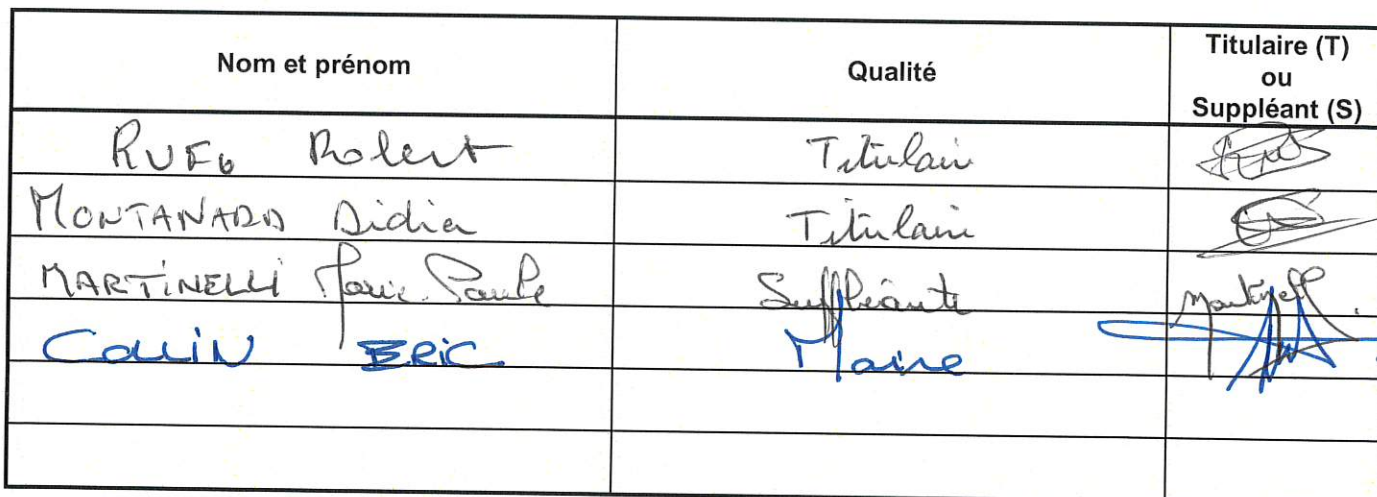 Nom et prénom Qualité Titulaire (T)
ou
Suppléant (S)
RUFO Robert Titulaire
MONTANARD Didier Titulaire
MARTINELLI Marie-Paule Suppléante
COLLIN ERIC Maire